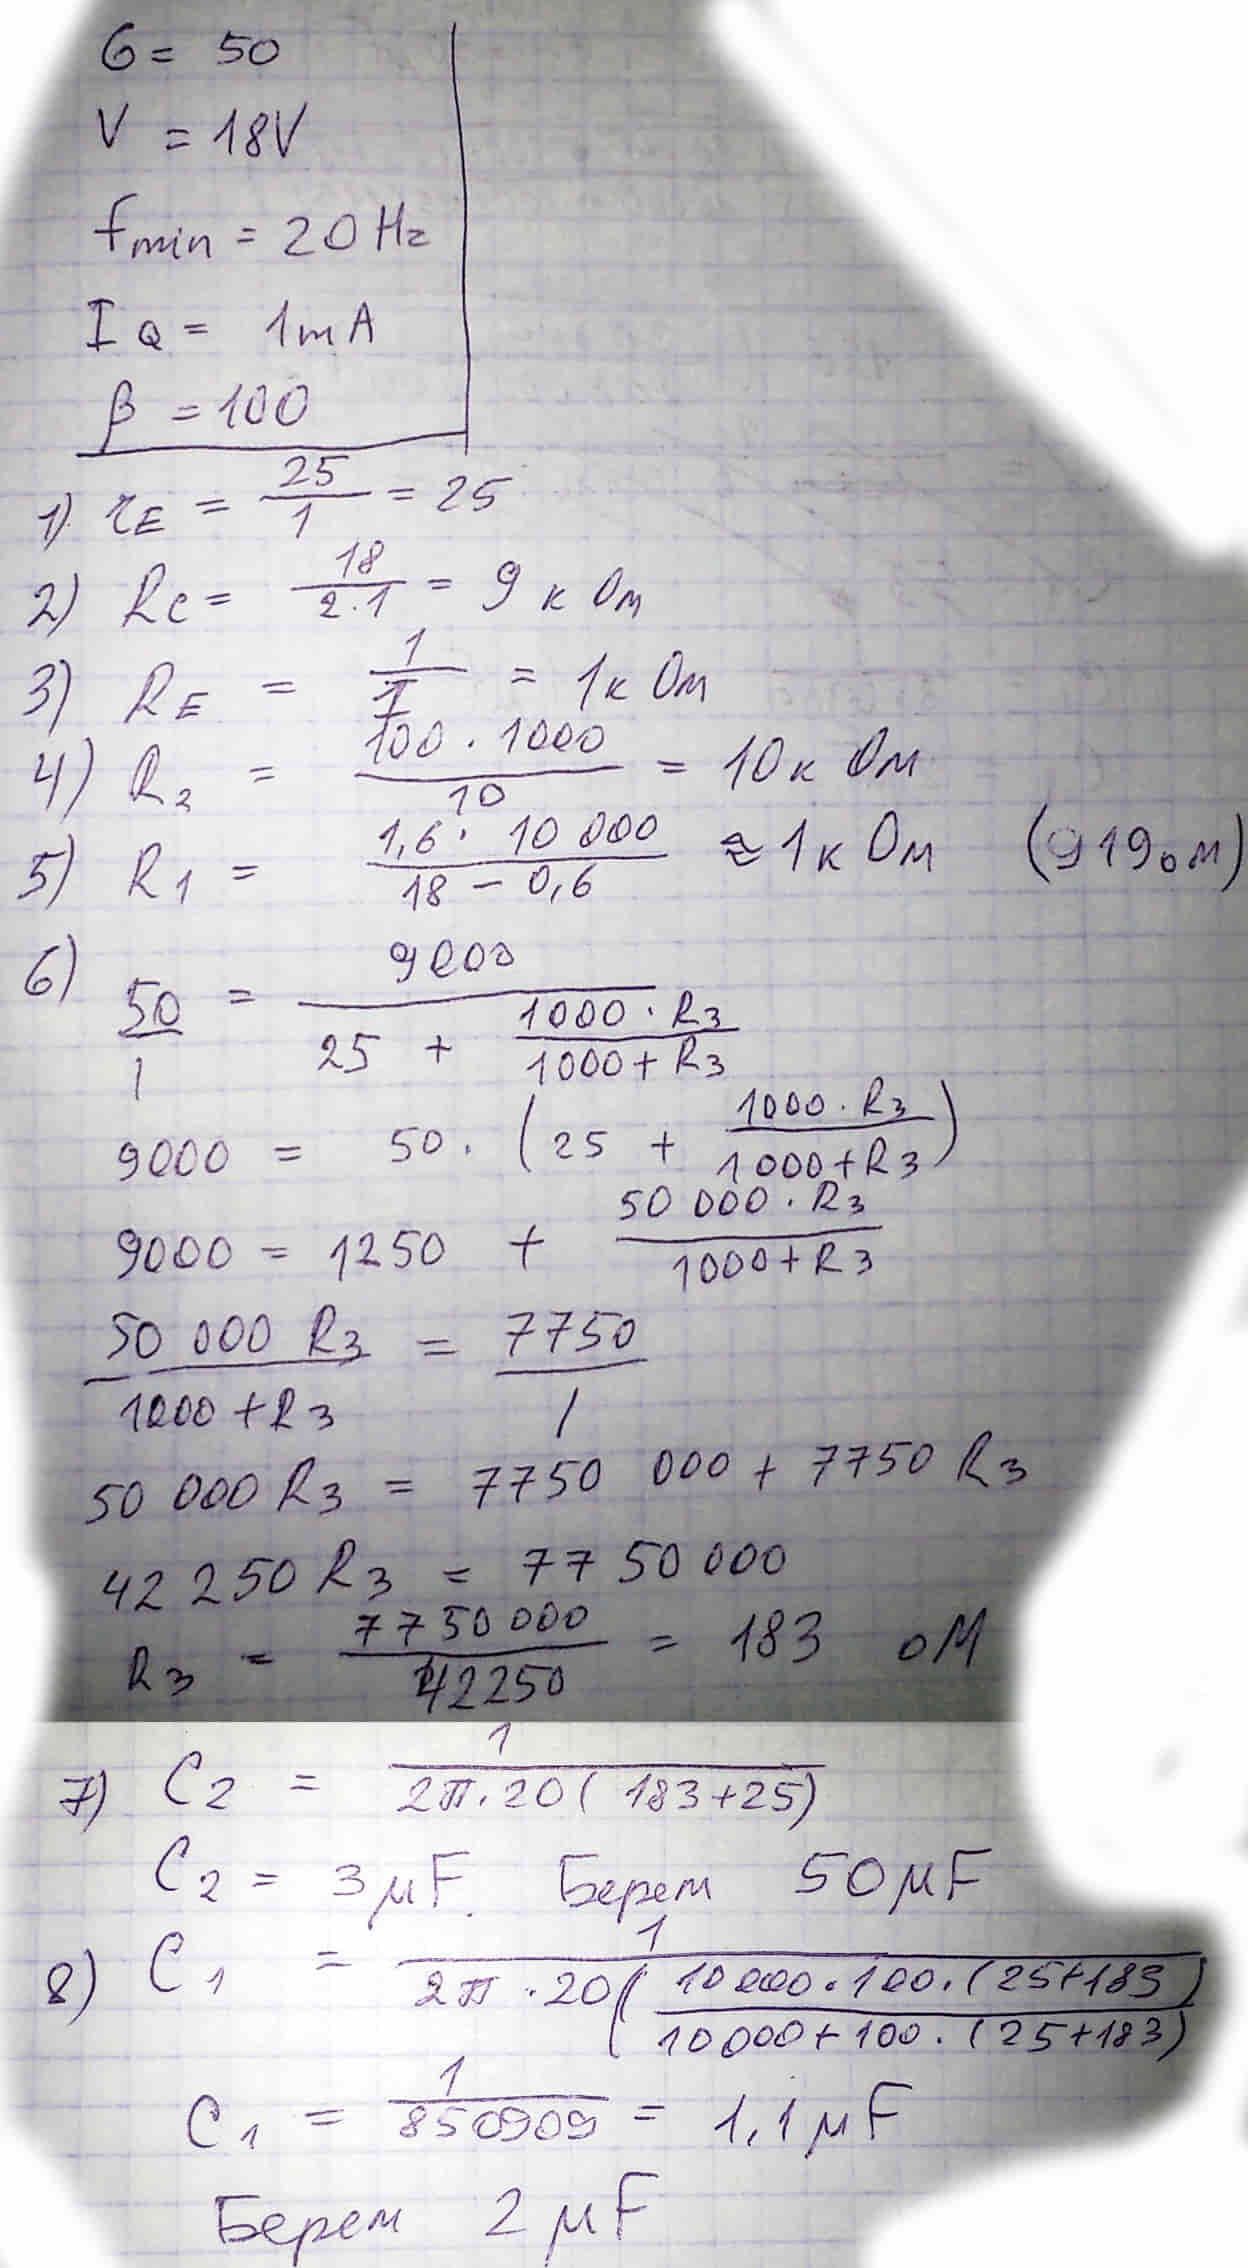 G = 50
V = 18V
fmin = 20 Hz
IQ = 1mA
β = 100
1) rE = 25/1 = 25
2) RC = 18/2·1 = 9 к Ом
3) RE = 1/1 = 1к Ом
4) R2 = 100·1000/10 = 10к Ом
5) R1 = 1,6·10 000/18 – 0,6 ≈ 1к Ом (919ом)
6) 50/1 = 9000/(25 + 1000·R3/(1000+R3))
9000 = 50·(25 + 1000·R3/(1000+R3))
9000 = 1250 + 50 000·R3/(1000+R3)
50 000 R3/(1000+R3) = 7750/1
50 000 R3 = 7750 000 + 7750 R3
42 250 R3 = 77 50 000
R3 = 7750 000/42250 = 183 ом
7) C2 = 1/2π·20(183+25)
C2 = 3 μF. Берем 50 μF
8) C1 = 1/2π·20(10 000·100·(25+183)/10 000+100·(25+183)
C1 = 1/850909 = 1,1 μF
Берем 2 μF